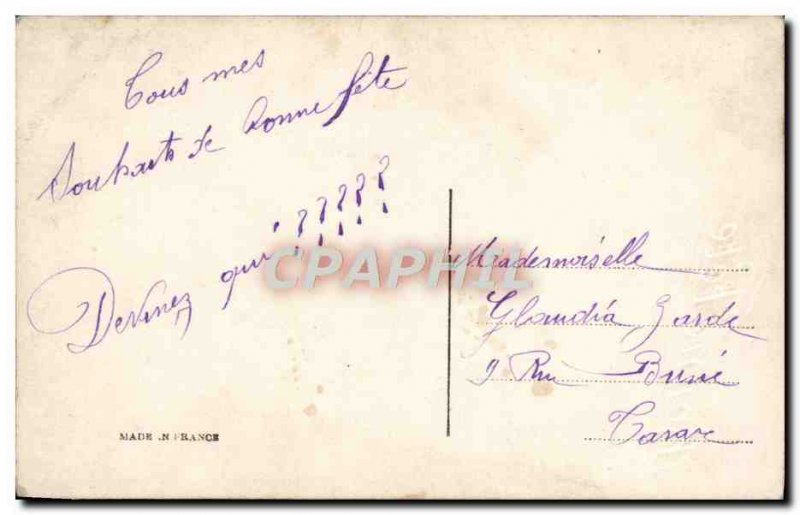 Tous mes
Souhaits de Bonne fête
Devinez qui ?????
Mademoiselle
Claudia Garde
9 Rue
Tarare
MADE IN FRANCE
CPAPHIL